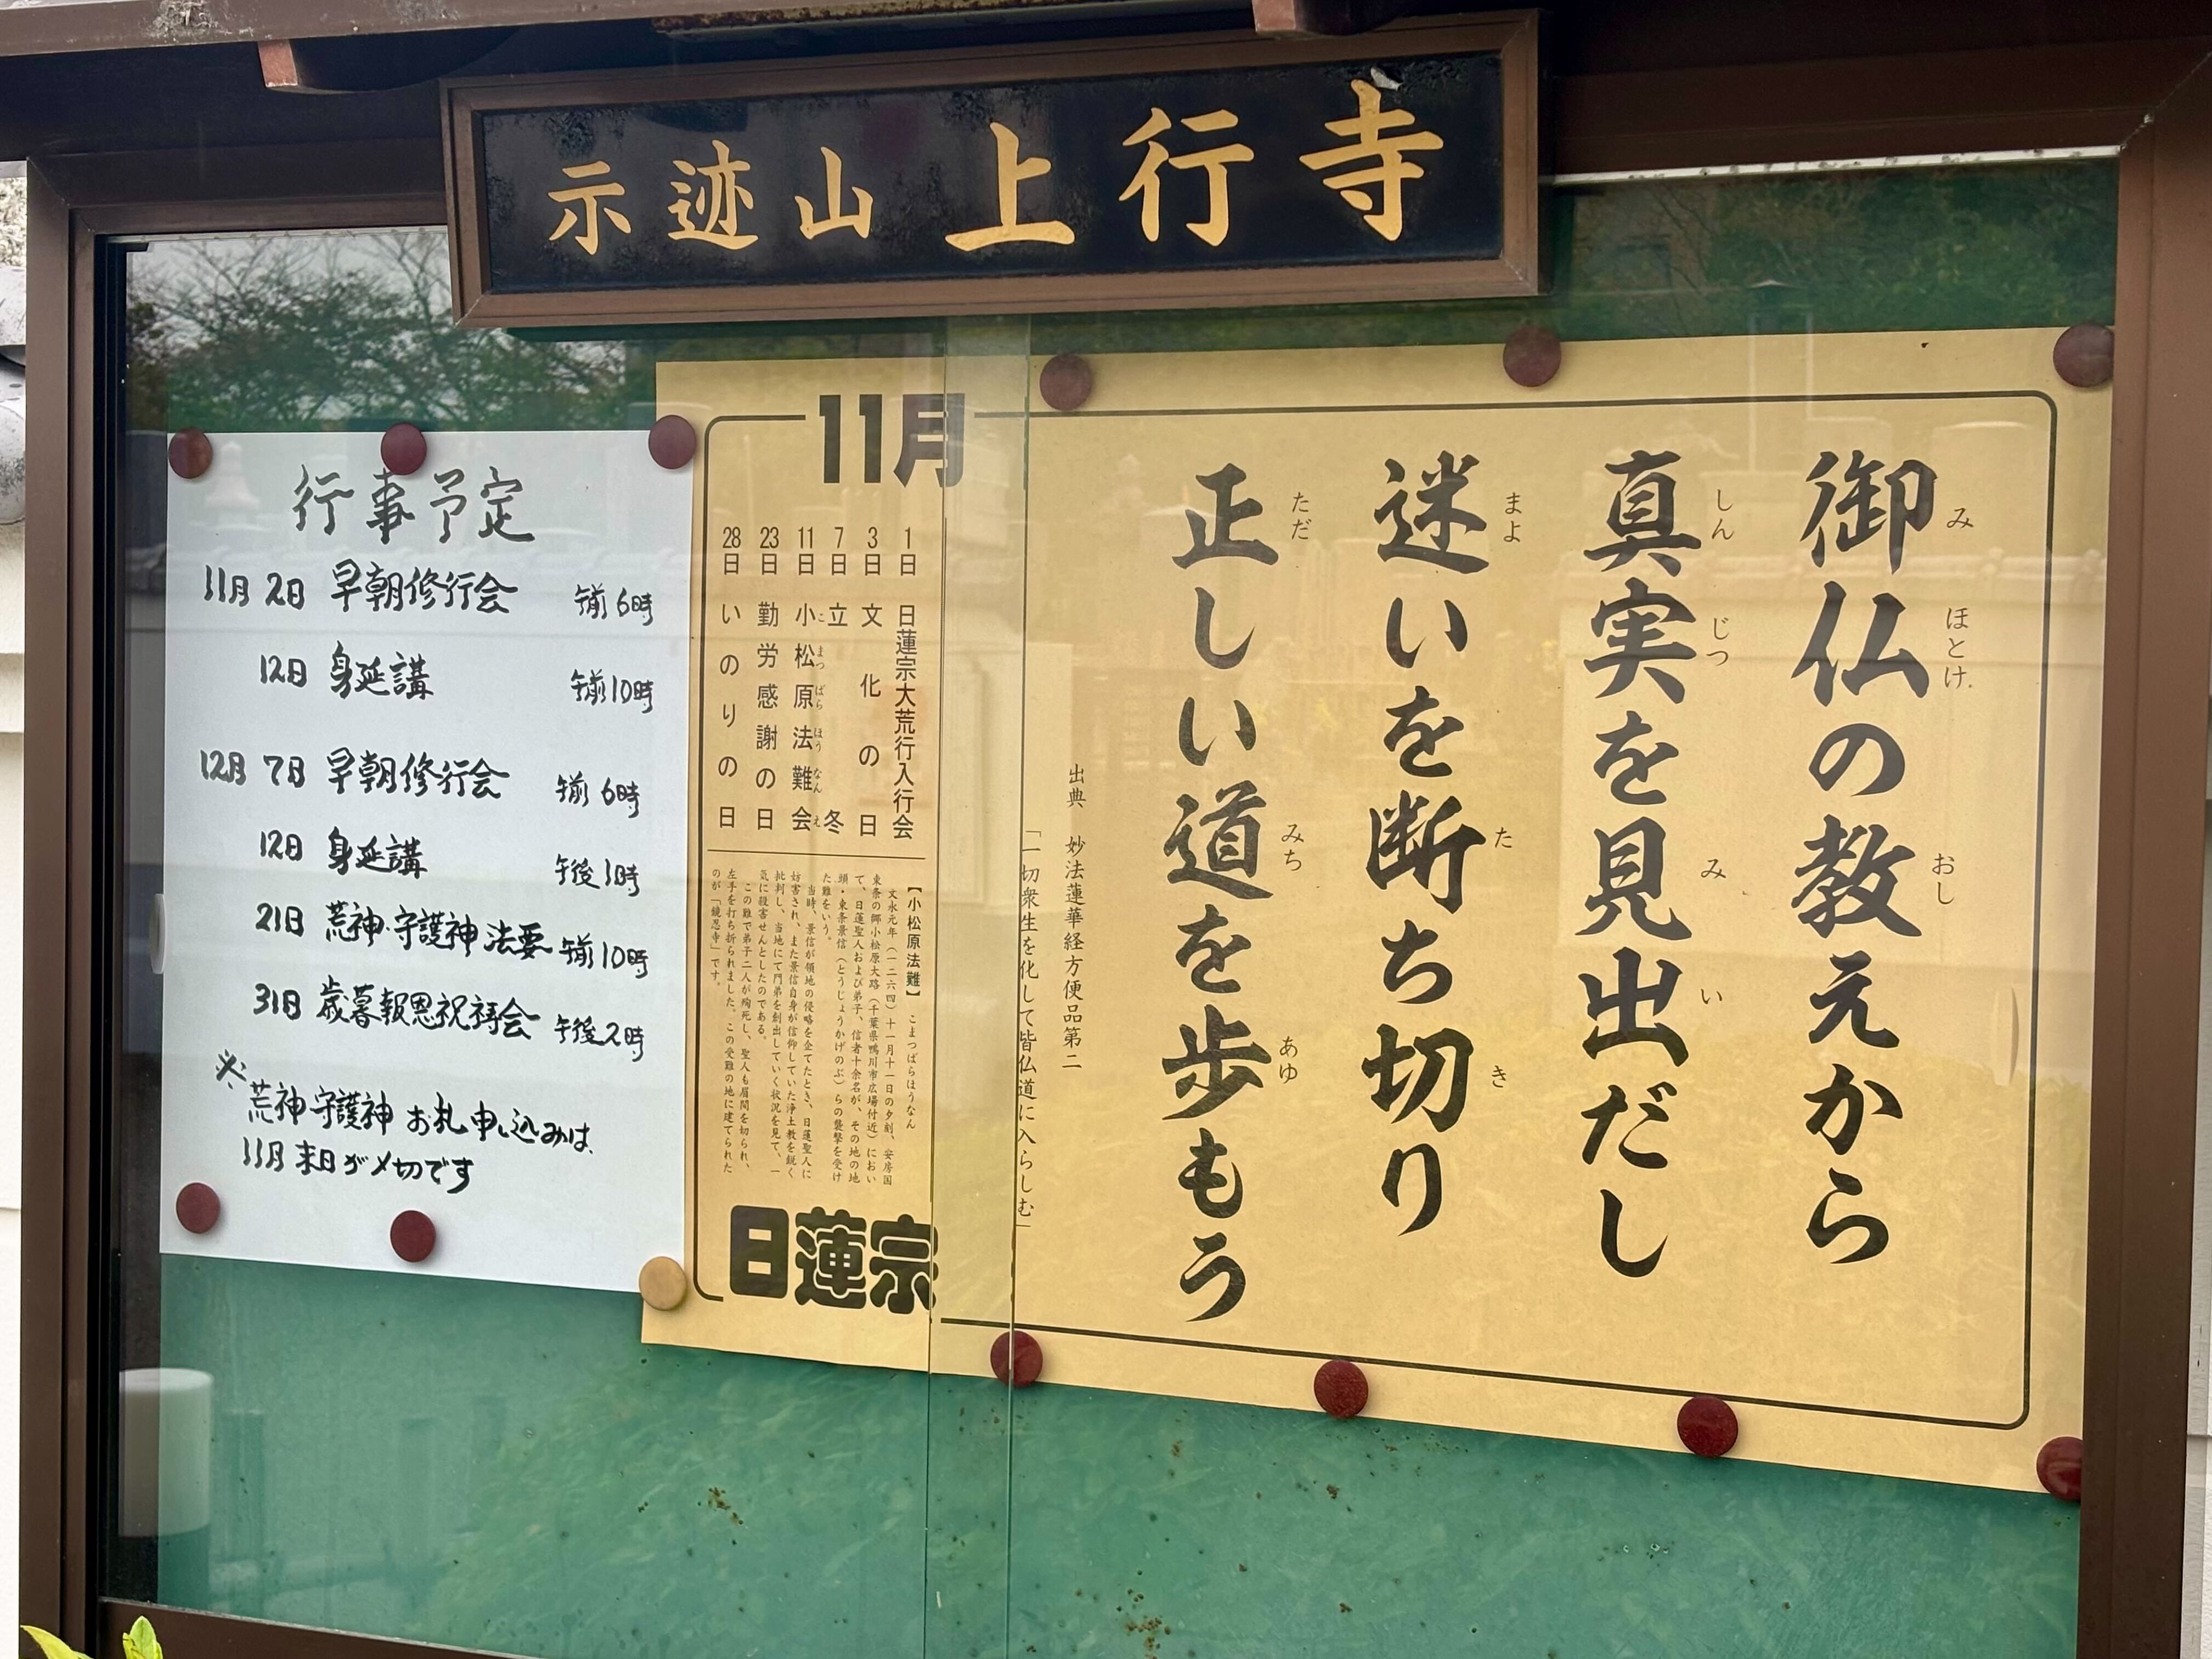 示迹山 上行寺
御仏の教えから
み ほとけ おし
真実を見出だし
しん じつ み い
迷いを断ち切り
まよ た き
正しい道を歩もう
ただ みち あゆ
出典 妙法蓮華経方便品第二
「一切衆生を化して皆仏道に入らしむ」
11月
1日 日蓮宗大荒行入行会
3日 文化の日
7日 立冬
11日 小松原法難会
こ まつ ばら ほう なん え
23日 勤労感謝の日
28日 いのりの日
【小松原法難】 こまつばらほうなん
文永元年（一二六四）十一月十一日の夕刻、安房国
東条の郷小松原大路（千葉県鴨川市広場付近）におい
て、日蓮聖人および弟子、信者十余名が、その地の地
頭・東条景信（とうじょうかげのぶ）らの襲撃を受け
た難をいう。
当時、景信が領地の侵略を企てたとき、日蓮聖人に
妨害され、また景信自身が信仰していた浄土教を鋭く
批判し、当地にて門弟を創出していく状況を見て、一
気に殺害せんとしたのである。
この難で弟子二人が殉死し、聖人も眉間を切られ、
左手を打ち折られました。この受難の地に建てられた
のが「鏡忍寺」です。
日蓮宗
行事予定
11月 2日 早朝修行会 午前6時
12日 身延講 午前10時
12月 7日 早朝修行会 午前6時
12日 身延講 午後1時
21日 荒神・守護神法要 午前10時
31日 歳暮報恩祝祷会 午後2時
※荒神・守護神 お札申し込みは、
11月末日が〆切です